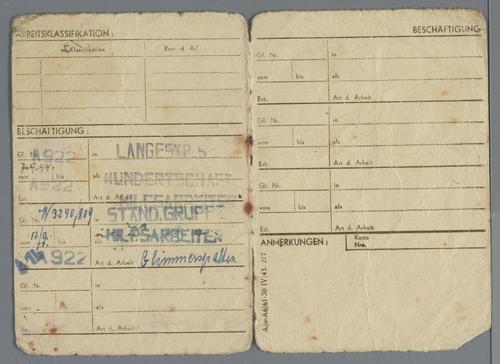 ARBEITSKLASSIFIKATION:
Klassifikation
Best. d. AZ
BESCHÄFTIGUNG:
Gl. Nr. A922
in LANGESTR. 5
vom
bis
als HUNDERTSCHAFT
A922
HILFSARBEITER
Est.
Gl. Nr. N 3240/809
STÄND. GRUPPE
vom
bis
als HILFSARBEITER
A 922
Art d. Arbeit Glimmerspalten
Gl. Nr.
in
vom
bis
als
Est.
Art d. Arbeit
BESCHÄFTIGUNG
Gl. Nr.
in
vom
bis
als
Est.
Art d. Arbeit
Gl. Nr.
in
vom
bis
als
Est.
Art d. Arbeit
Gl. Nr.
in
vom
bis
als
Est.
Art d. Arbeit
ANMERKUNGEN:
Konto
Nro.